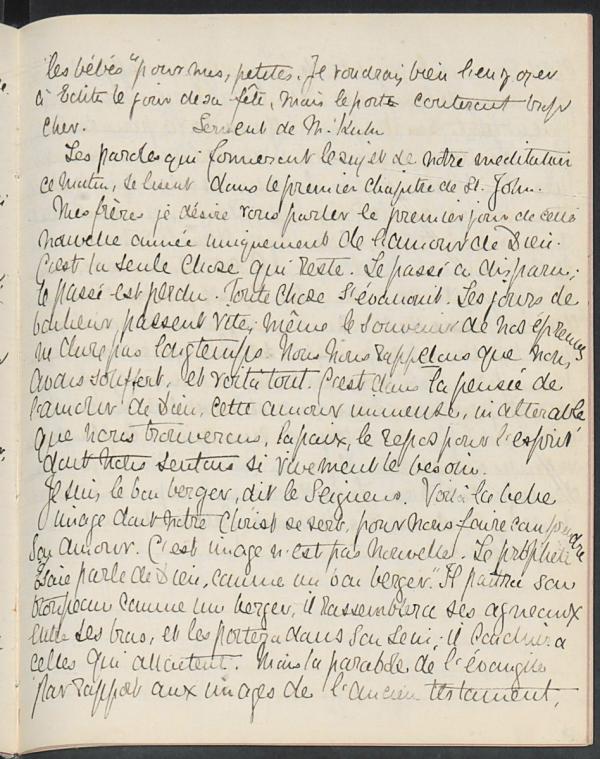 les bébés" pour mes, petites. Je voudrais bien l'envoyer
à Edith le jour de sa fête, mais le porte couterait trop
cher. Serment de M. Kuhn
Les paroles qui formeront le sujet de notre meditation
ce matin, se lisent dans le premier chapitre de St. John.
Mes frères je désire vous parler le premier jour de cette
nouvelle année uniquement de l'amour de Dieu.
C'est la seule chose qui reste. Le passé a disparu,
le passé est perdu. Toute chose s'évanouit. Les jours de
bonheur, passent vite, même le souvenir de nos épreuves
ne dure pas longtemps. Nous nous rappelons que nous
avons souffert, et voilà tout. C'est dans la pensée de
l'amour de Dieu, cette amour immense, inalterable
que nous trouverons, la paix, le repos pour l'esprit
dont nous sentons si vivement le besoin.
Je suis le bon berger, dit le Seigneur. Voilà la belle
image dont notre Christ se sert, pour nous faire comprendre
Son amour. C'est image n'est pas nouvelle. Le prophète
Esaie parle de Dieu, comme un bon berger." Il paîtra son
troupeau comme un berger, il rassemblera ses agneaux
entre ses bras, et les portera dans Son sein; il conduira
celles qui allaitent. Mais la parabole de l'évangile
par rapport aux images de l'ancien testament,